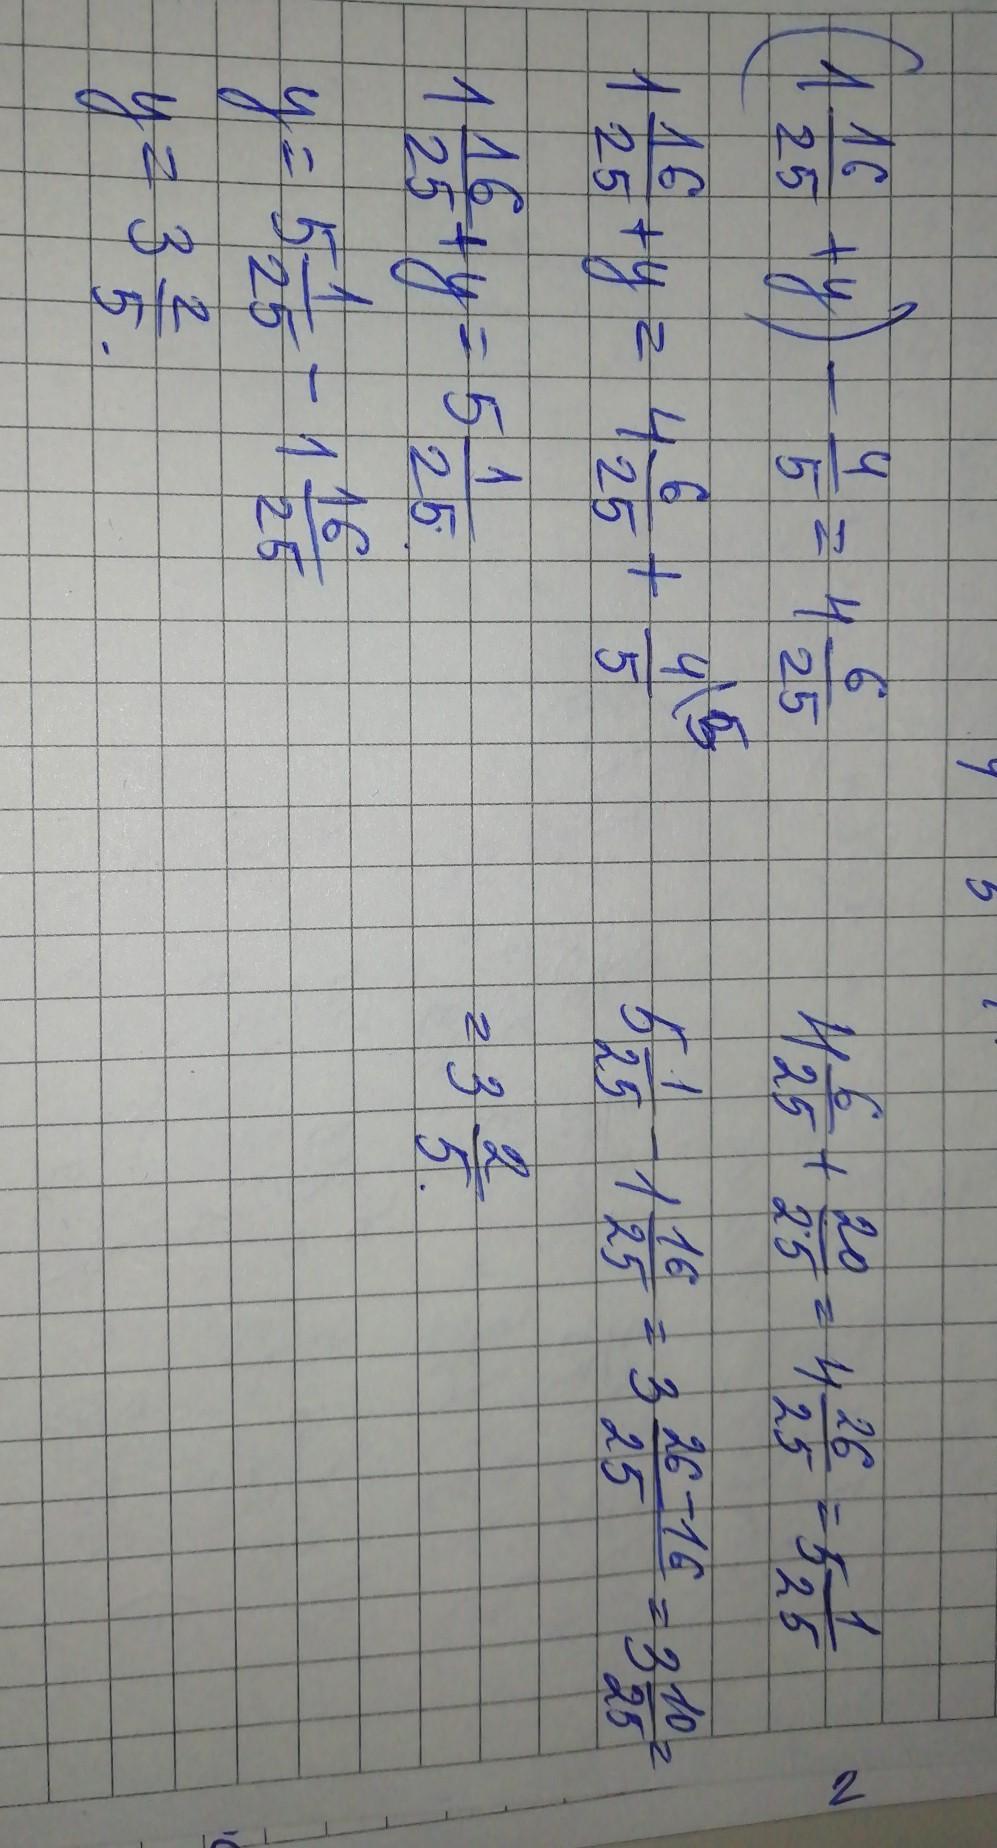 (1 16/25 + y) - 4/5 = 4 6/25
1 16/25 + y = 4 6/25 + 4/5 \5
1 16/25 + y = 5 1/25.
y = 5 1/25 - 1 16/25
y = 3 2/5.
4 6/25 + 20/25 = 4 26/25 = 5 1/25
5 1/25 - 1 16/25 = 3 26-16/25 = 3 10/25 =
= 3 2/5.